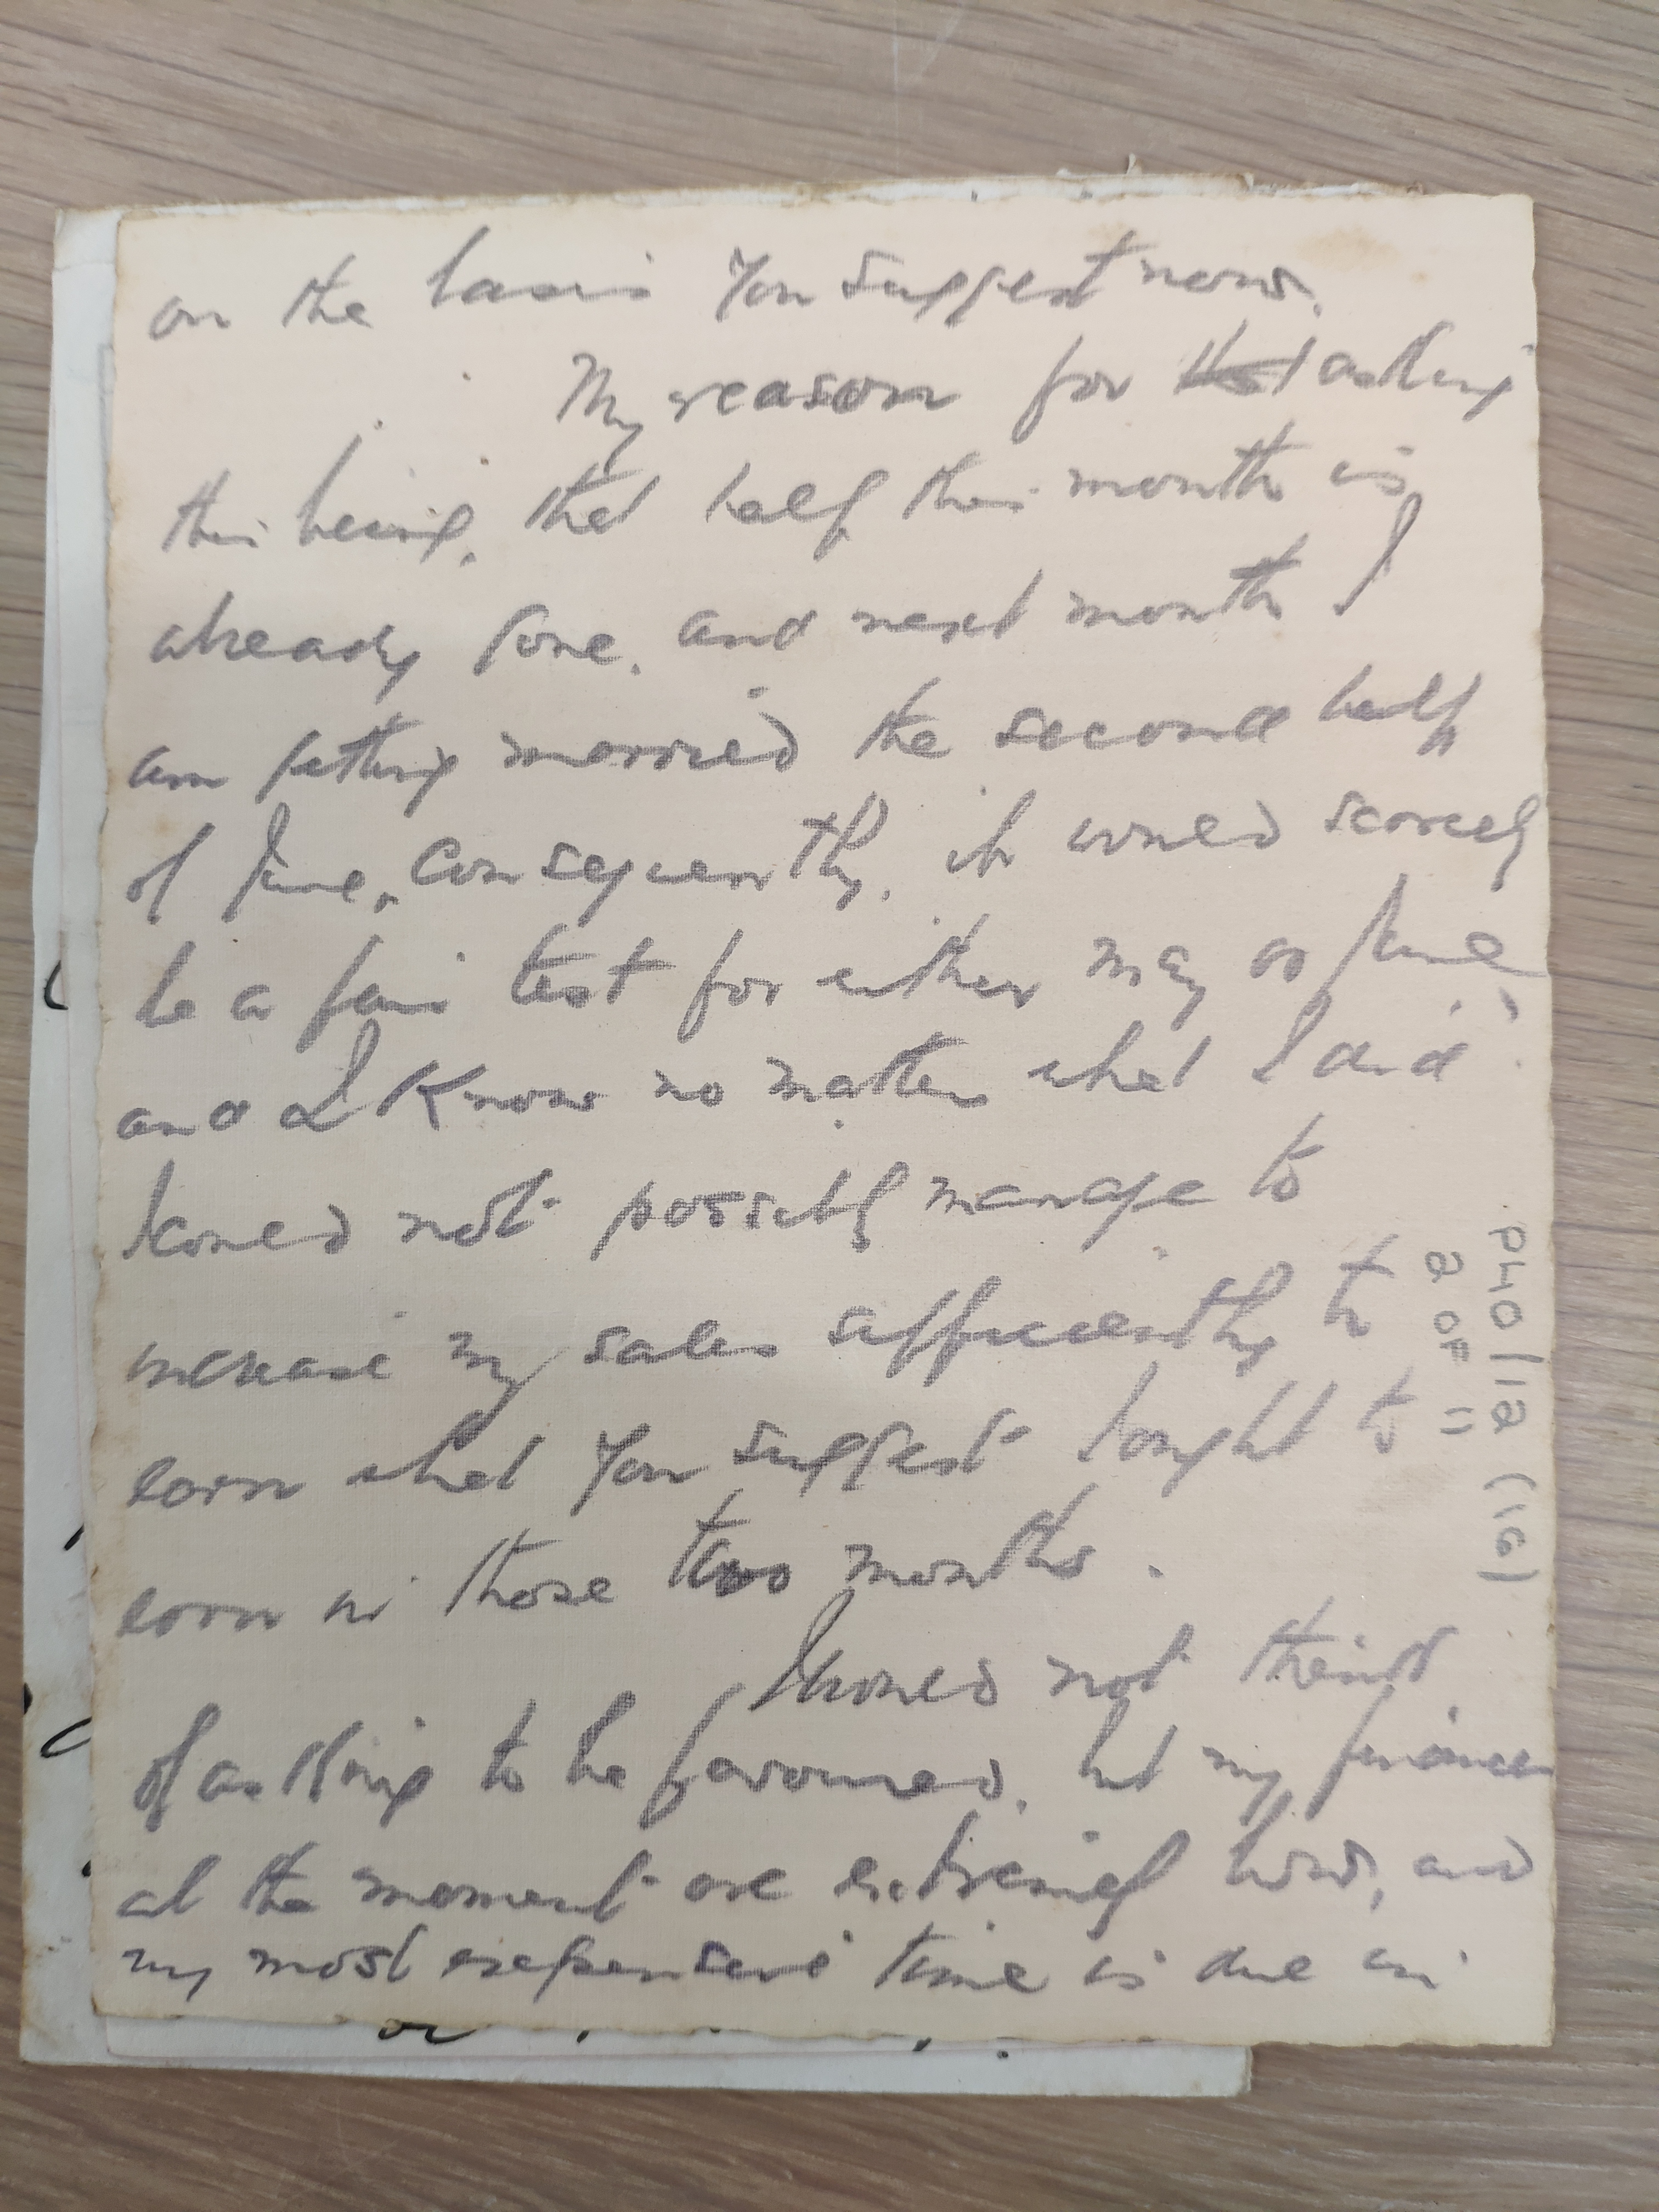 on the basis you suggest now.
My reason for asking
this being, that half this month is
already gone, and next month I
am getting married the second half
of June, consequently, it would scarcely
be a fair test for either May or June
and I know no matter what I did
I could not possibly manage to
increase my sales sufficiently to
earn what you suggest I ought to
earn in those two months.
I would not think
of asking to be favoured, but my finances
at the moment are extremely low, and
my most expensive time is due in
PHO/12 (16)
2 OF 11